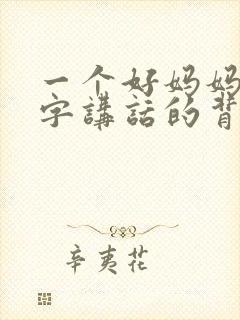 一个好妈妈
字講話的背
辛夷花